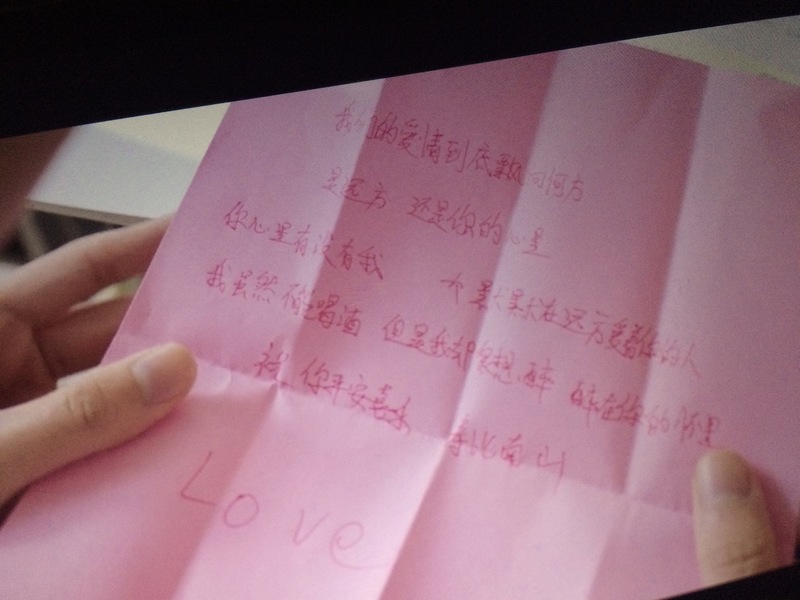 我们的爱情到底飘向何方
是远方 还是你的心里
你心里有没有我 个默默在远方爱着你的人
我虽然不能喝酒 但是我却很想醉 醉在你的怀里
祝你平安喜乐 寿比南山
Love